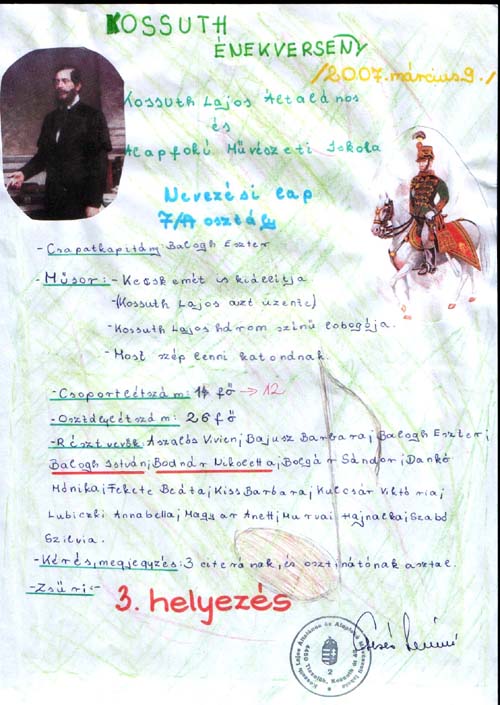 KOSSUTH
ÉNEKVERSENY
/2007.március 9./
Kossuth Lajos Általános
és
Alapfokú Művészeti Iskola
Nevezési lap
7/A osztály
-Csapatkapitány: Balogh Eszter
-Műsor: - Kecskemét is kiállítja
-(Kossuth Lajos azt üzente)
-Kossuth Lajos három színű lobogója.
-Most szép lenni katonának.
-Csoportlétszám: 14 fő → 12
-Osztálylétszám: 26 fő
-Résztvevők: Aszalós Vivien; Bajusz Barbara; Balogh Eszter;
Balogh István; Bodnár Nikoletta; Bolgár Sándor; Dankó
Mónika; Fekete Beáta; Kiss Barbara; Kulcsár Viktória;
Lubiczki Annabella; Magyar Anett; Murvai Hajnalka; Szabó
Szilvia.
-Kérés, megjegyzés: 3 citerának, és osztinátónak asztal.
-Zsűri:-
3. helyezés
Kossuth Lajos Általános és Alapfokú Művészeti Iskola
2